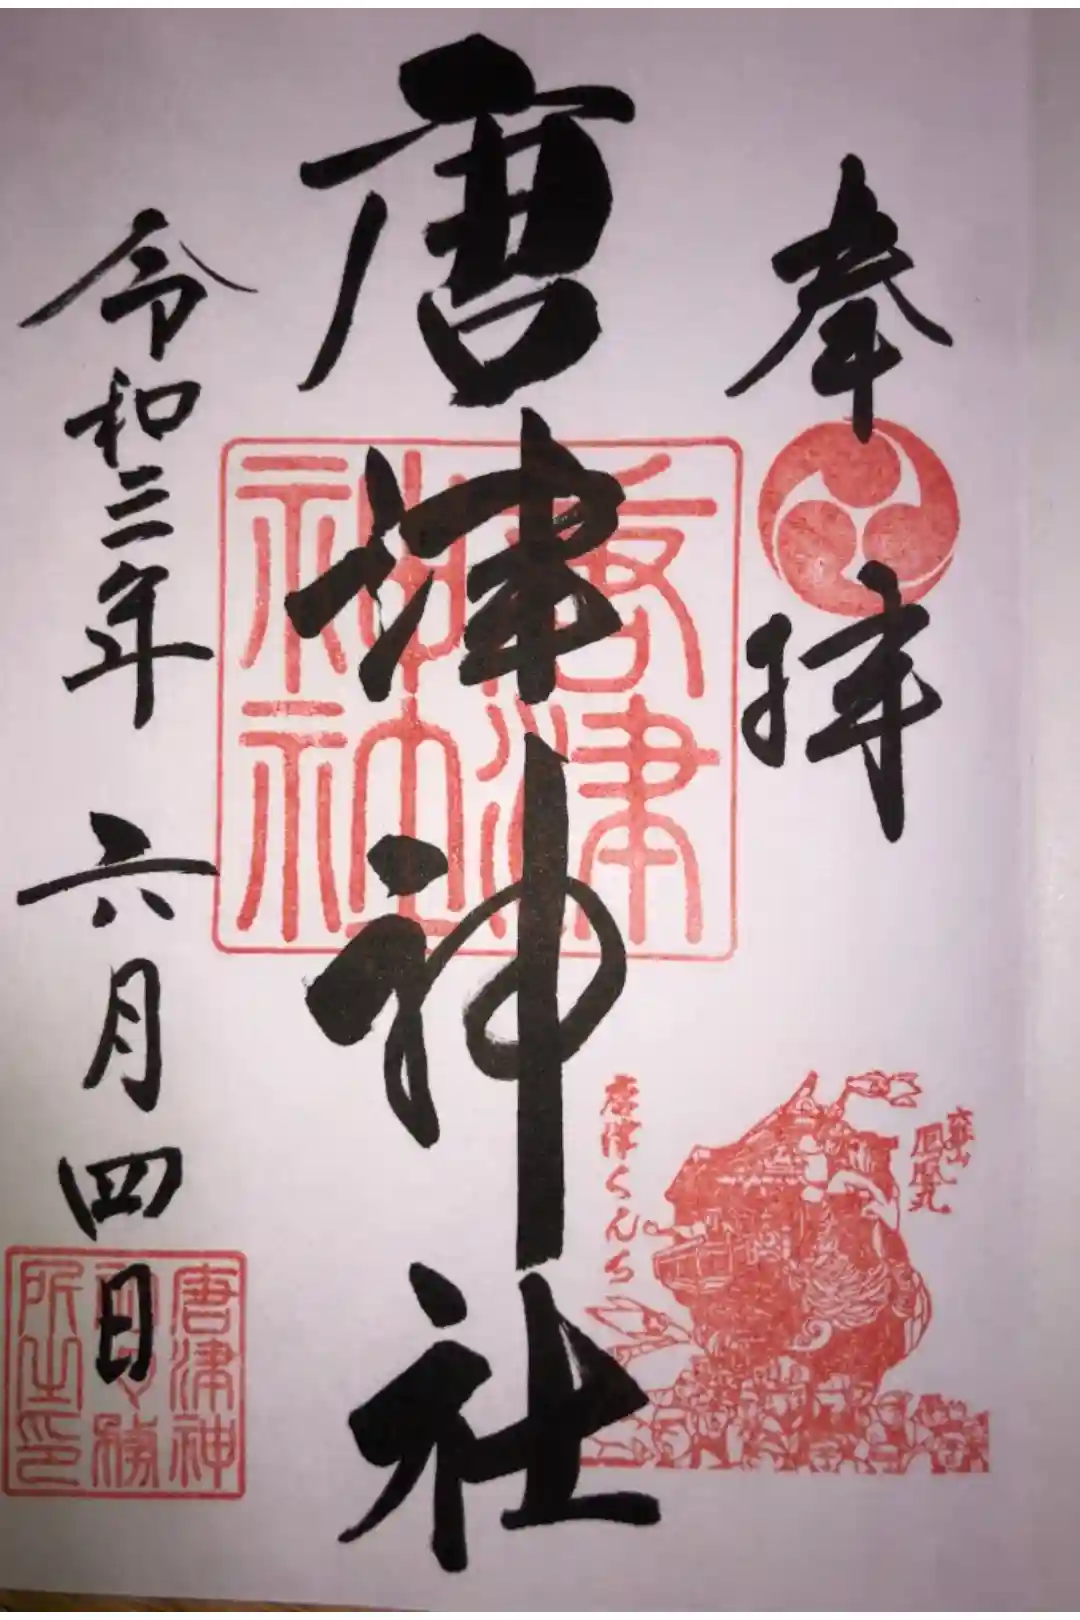 奉拝
唐津神社
唐津神社
唐津くんち
六本町
鳳凰丸
令和三年 六月四日
唐津神
所之印